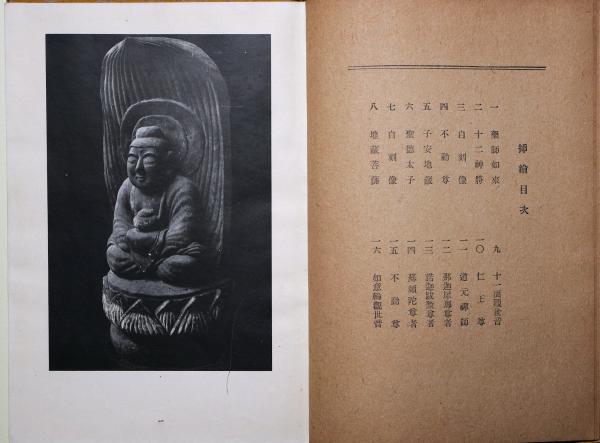 揷繪目次
一 藥師如來
二 十二神將
三 自刻像
四 不動尊
五 子安地藏
六 聖德太子
七 自刻像
八 地藏菩薩
九 十一面觀世音
一〇 仁王尊
一一 道元禪師
一二 那迦犀那尊者
一三 尊者
一四 蘇頻陀尊者
一五 不動尊
一六 如意輪觀世音